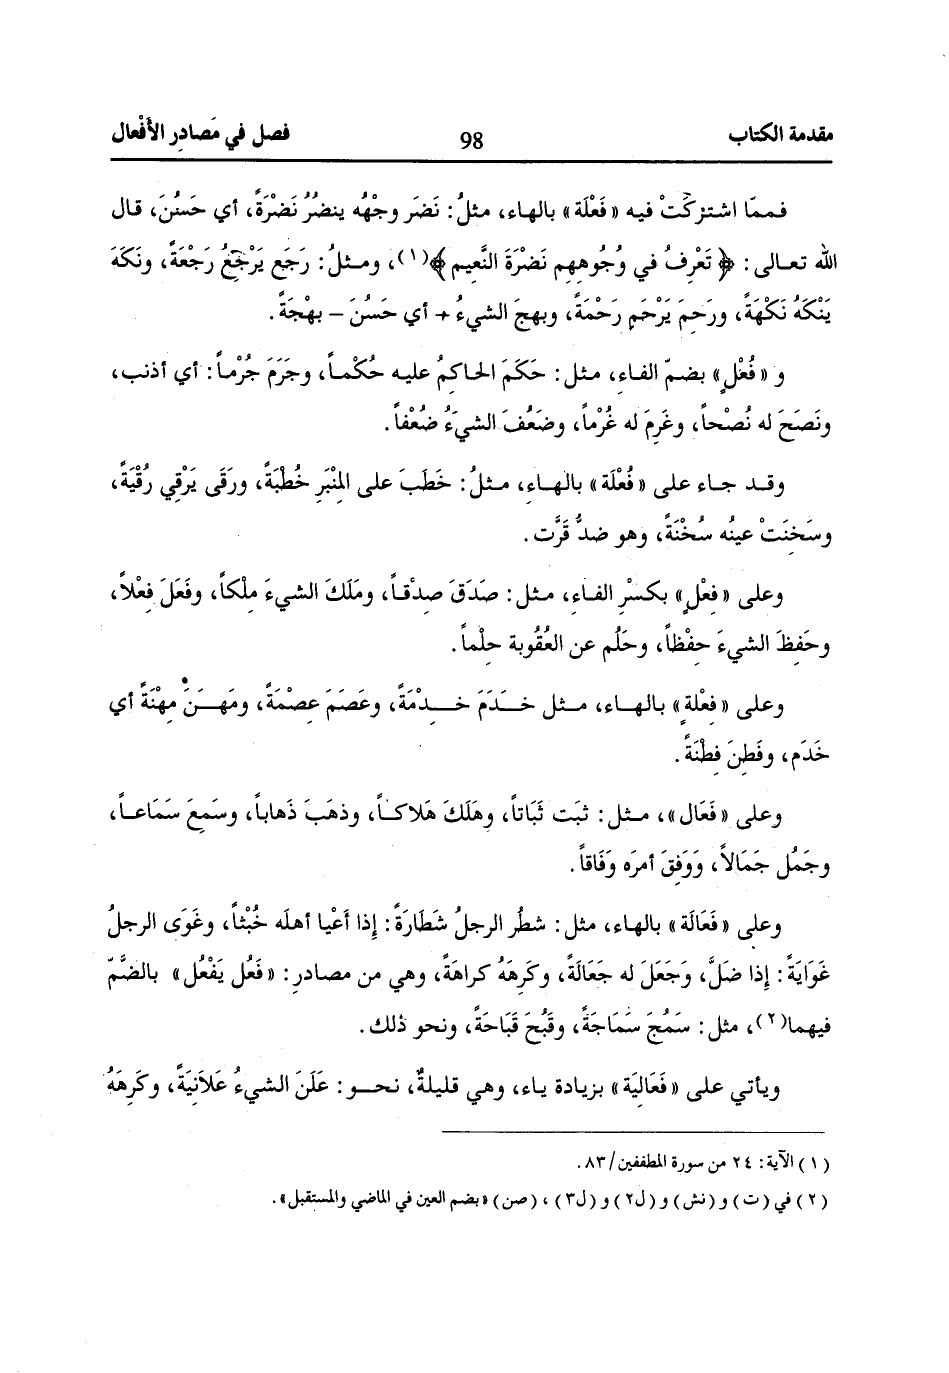 مقدمة الكتاب 98 فصل في مَصادِر الأَفْعال
فـممّا اشتركَتْ فيه «فَعْلَة» بالهاء، مثلُ: نَضَر وجْهُه ينضُرُ نَضْرَةً، أي حَسُنَ، قال
الله تعـالى: ﴿ تَعْرِفُ في وُجُوهِهِم نَضْرَةَ النَّعِيم ﴾(١)، ومـثلُ: رَجَع يَرْجِعُ رَجْعَةً، ونَكَهَ
يَنْكَهُ نَكْهَةً، ورَحِمَ يَرْحَم رَحْمَةً، وبهِجَ الشيءُ + أي حَسُنَ – بهْجَةً.
و «فُعْلٍ» بضمّ الفـاء، مثل: حَكَمَ الحاكِمُ عليـه حُكْمـاً، وجَرَمَ جُرْمـاً: أي أذنب،
ونَصَحَ له نُصْحاً، وغَرِمَ له غُرْماً، وضَعُفَ الشيءُ ضُعْفاً.
وقـد جـاء على «فُعْلَة» بالهـاء، مـثلُ: خَطَبَ على المِنْبَرِ خُطْبَةً، ورَقَى يَرْقِي رُقْيَةً،
وسَخِنَتْ عينُه سُخْنَةً، وهو ضدُّ قَرَّت.
وعلى «فِعْلٍ» بكسْرِ الفـاءِ، مـثل: صَدَقَ صِدْقـاً، ومَلَكَ الشيءَ مِلْكاً، وفَعَلَ فِعْلاً،
وحَفِظَ الشيءَ حِفْظاً، وحَلُم عن العُقُوبة حِلْماً.
وعلى «فِعْلةٍ» بالهـاء، مـثل خـَدَمَ خـِدْمَةً، وعَصَمَ عِصْمَةً، ومَهـَنَ مِهْنَةً أي
خَدَم، وفَطِنَ فِطْنَةً.
وعلى «فَعَال»، مـثل: ثبَت ثَبَاتاً، وهَلَكَ هَلاكـاً، وذهَبَ ذَهاباً، وسَمِعَ سَمَاعـاً،
وجَمُل جَمَالاً، وَوَفِقَ أمرَه وَفَاقاً.
وعلى «فَعَالَة» بالهاء، مثل: شطُر الرجلُ شَطَارَةً: إذا أَعْيا أهلَه خُبْثاً، وغَوَى الرجلُ
غَوَايَةً: إذا ضَلَّ، وَجَعَلَ له جَعَالَةً، وكَرِهَهُ كراهَةً، وهي من مصادر: «فَعُل يَفْعُل» بالضَّمّ
فيهما(٢)، مثل: سَمُجَ سَمَاجَةً، وقَبُحَ قَبَاحَةً، ونحو ذلك.
ويأتي على «فَعَالِيَة» بزيادة ياء، وهي قليلةٌ، نحـو: عَلَنَ الشيءُ عَلاَنِيَةً، وكَرِهَهُ
(١) الآية: ٢٤ من سورة المطففين/٨٣.
(٢) في (ت) و (نش) و (ل٢) و (ل٣) ، (صن) «بضم العين في الماضي والمستقبل».